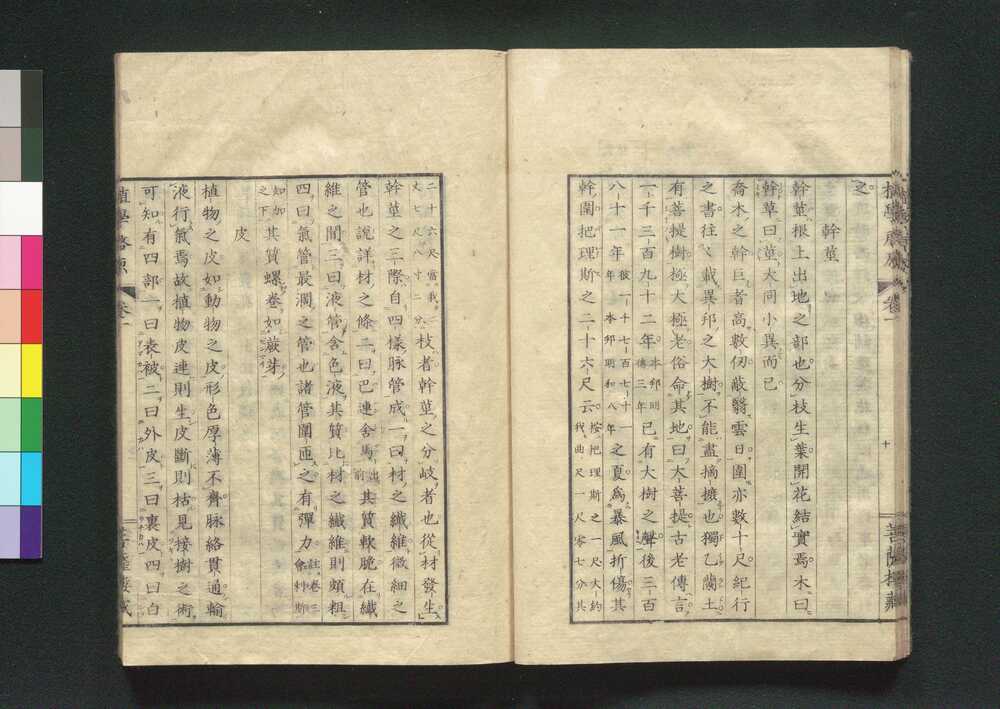 之
幹莖
幹莖根上出地之部也分枝生葉開花結實焉木曰
幹草曰莖大同小異而已
喬木之幹巨者高數仞蔽翳雲日圍亦數十尺紀行
之書往々載異邦之大樹不能盡摘摭也獨乙蘭土
有菩提樹極大極老俗命其地曰大菩提古老傳言
一千三百九十二年本邦明德三年已有大樹之聲後三百
八十一年彼一千七百七十一年本邦明和八年之夏為暴風折傷其
幹圍把理斯之二十六尺云按把理斯之一尺大約我曲尺一尺零七分其
二十六尺當我二丈七尺八寸二分枝者幹莖之分岐者也從材發生
幹莖之三際自四樣脉管成一曰材之纖維微細之
管也說詳材之條二曰巴連舍馬出前其質軟脆在纖
維之間三曰液管含色液其質比材之纖維則頗粗
四曰氣管最濶之管也諸管圍匝之有彈力註卷三會料斯
知如之下其質螺卷如蕨芽
皮
植物之皮如動物之皮形色厚薄不齊脉絡貫通輸
液行氣焉故植物皮連則生皮斷則枯見接樹之術
可知有四部一曰表被二曰外皮三曰裏皮四曰白
植學啓原 卷一